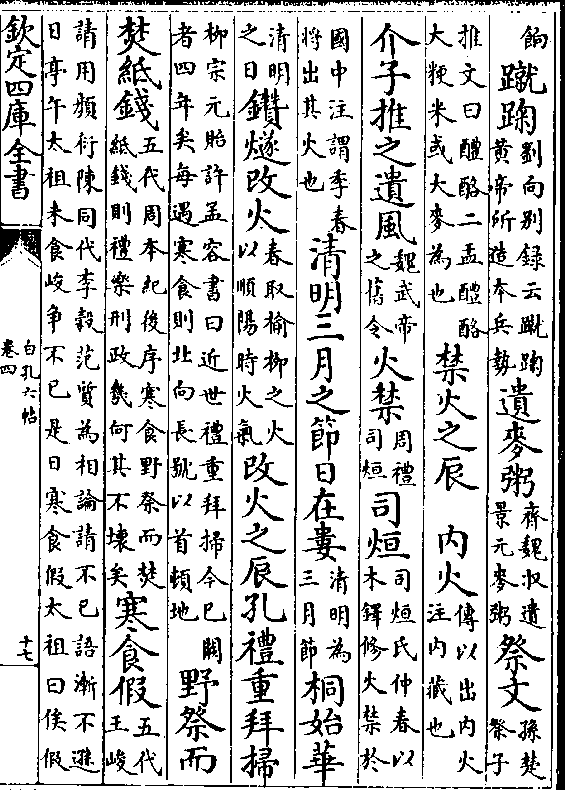 餉蹴踘劉向别録云蹴踘黄帝所造本兵勢遺麥粥齊魏収遺景元麥粥祭文孫楚祭子
推文曰醴酪二盂醴酪大粳米或大麥為也禁火之辰 内火傳以出内火注内藏也
介子推之遺風魏武帝之舊令火禁周禮司烜司烜司烜氏仲春以木鐸修火禁於
國中注謂季春將出其火也清明三月之節日在婁清明為三月節桐始華
清明之日鑽燧改火春取榆柳之火以順陽時火氣改火之辰孔禮重拜掃
柳宗元貽許孟容書曰近世禮重拜掃今已闕者四年矣每遇寒食則北向長號以首頓地野祭而
焚紙錢五代周本紀後序寒食野祭而焚紙錢則禮樂刑政幾何其不壞矣寒食假五代王峻
請用頦衍陳同代李穀范質為相論請不已語漸不遜日亭午太祖未食峻争不已是日寒食假太祖曰俟假
欽定四庫全書
白孔六帖
卷四
十七